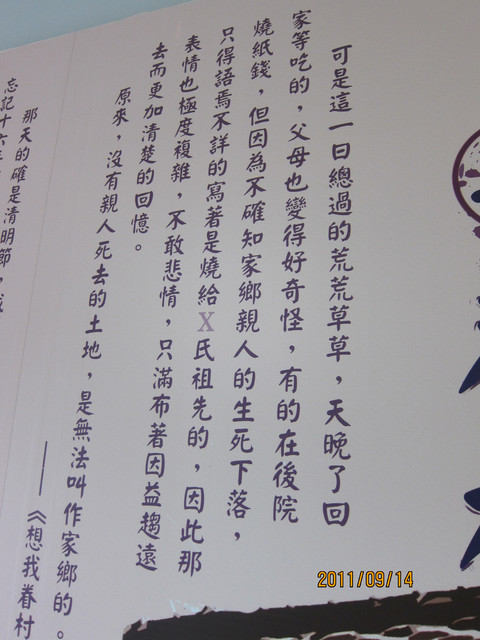 可是這一日總過的荒荒草草，天晚了回
家等吃的，父母也變得好奇怪，有的在後院
燒紙錢，但因為不確知家鄉親人的生死下落，
只得語焉不詳的寫著是燒給X氏祖先的，因此那
表情也極度複雜，不敢悲情，只滿布著因益趨遠
去而更加清楚的回憶。
原來，沒有親人死去的土地，是無法叫作家鄉的。
——《想我眷村
那天的確是清明節，
忘記十六
2011/09/14